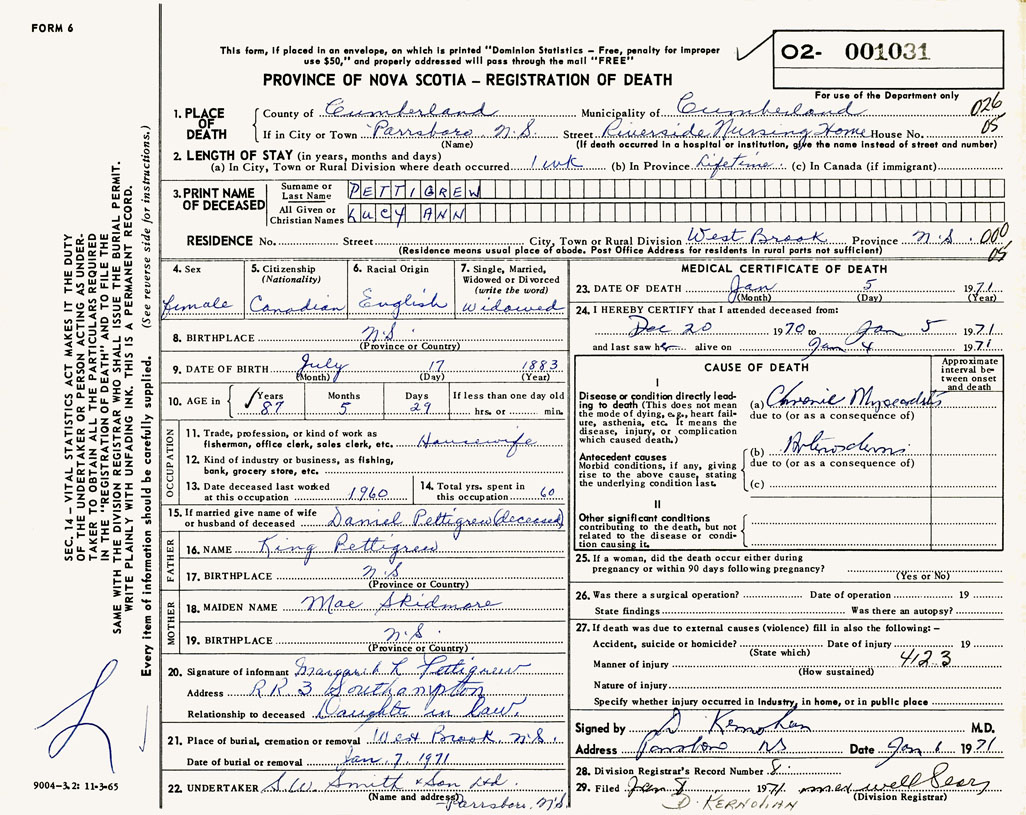 FORM 6
This form, if placed in an envelope, on which is printed "Dominion Statistics – Free, penalty for improper
use $50," and properly addressed will pass through the mail "FREE"
O2- 001031
PROVINCE OF NOVA SCOTIA – REGISTRATION OF DEATH
For use of the Department only
026
05
1. PLACE OF DEATH
County of Cumberland Municipality of Cumberland
If in City or Town Parrsboro N.S. Street Riverside Nursing Home House No.
(Name) (If death occurred in a hospital or institution, give the name instead of street and number)
2. LENGTH OF STAY (in years, months and days)
(a) In City, Town or Rural Division where death occurred 1 wk (b) In Province Lifetime (c) In Canada (if immigrant)
3. PRINT NAME OF DECEASED
Surname or Last Name PETTIGREW
All Given or Christian Names LUCY ANN
RESIDENCE No. Street City, Town or Rural Division West Brook Province N.S. 000
05
(Residence means usual place of abode. Post Office Address for residents in rural parts not sufficient)
4. Sex
female
5. Citizenship
(Nationality)
Canadian
6. Racial Origin
English
7. Single, Married,
Widowed or Divorced
(write the word)
Widowed
8. BIRTHPLACE N.S.
(Province or Country)
9. DATE OF BIRTH July 17 1883
(Month) (Day) (Year)
10. AGE in Years Months Days If less than one day old
87 5 29 hrs. or min.
OCCUPATION
11. Trade, profession, or kind of work as
fisherman, office clerk, sales clerk, etc. Housewife
12. Kind of industry or business, as fishing,
bank, grocery store, etc.
13. Date deceased last worked
at this occupation 1960
14. Total yrs. spent in
this occupation 60
15. If married give name of wife
or husband of deceased Daniel Pettigrew (deceased)
FATHER
16. NAME King Pettigrew
17. BIRTHPLACE N.S
(Province or Country)
MOTHER
18. MAIDEN NAME Mae Skidmore
19. BIRTHPLACE N.S.
(Province or Country)
20. Signature of informant Margaret L Pettigrew
Address R R 3 Southampton
Relationship to deceased Daughter in law.
21. Place of burial, cremation or removal West Brook N.S.
Date of burial or removal Jan 7 1971
22. UNDERTAKER S.W. Smith & Son Ltd.
(Name and address) Parrsboro, N.S.
MEDICAL CERTIFICATE OF DEATH
23. DATE OF DEATH Jan 5 1971
(Month) (Day) (Year)
24. I HEREBY CERTIFY that I attended deceased from:
Dec 20 1970 to Jan 5 1971
and last saw her alive on Jan 4 1971
CAUSE OF DEATH
Approximate
interval be-
tween onset
and death
I
Disease or condition directly lead-
ing to death (This does not mean
the mode of dying, e.g., heart fail-
ure, asthenia, etc. It means the
disease, injury, or complication
which caused death.)
(a) Chronic Myocarditis
due to (or as a consequence of)
Antecedent causes
Morbid conditions, if any, giving
rise to the above cause, stating
the underlying condition last.
(b)
due to (or as a consequence of)
(c)
II
Other significant conditions
contributing to the death, but not
related to the disease or condi-
tion causing it.
25. If a woman, did the death occur either during
pregnancy or within 90 days following pregnancy?
(Yes or No)
26. Was there a surgical operation? Date of operation 19
State findings Was there an autopsy?
27. If death was due to external causes (violence) fill in also the following: –
Accident, suicide or homicide? Date of injury 19
(State which)
412.3
Manner of injury
(How sustained)
Nature of injury
Specify whether injury occurred in Industry, in home, or in public place
Signed by D Kernohan M.D.
Address Parrsboro NS Date Jan 6 1971
28. Division Registrar's Record Number 8.
29. Filed Jan 8 1971
(Division Registrar)
D. KERNOHAN
SEC. 14 – VITAL STATISTICS ACT MAKES IT THE DUTY
OF THE UNDERTAKER OR PERSON ACTING AS UNDER-
TAKER TO OBTAIN ALL THE PARTICULARS REQUIRED
IN THE "REGISTRATION OF DEATH" AND TO FILE THE
SAME WITH THE DIVISION REGISTRAR WHO SHALL ISSUE THE BURIAL PERMIT.
WRITE PLAINLY WITH UNFADING INK. THIS IS A PERMANENT RECORD.
Every item of information should be carefully supplied. (See reverse side for instructions.)
9004-3.2: 11-3-65